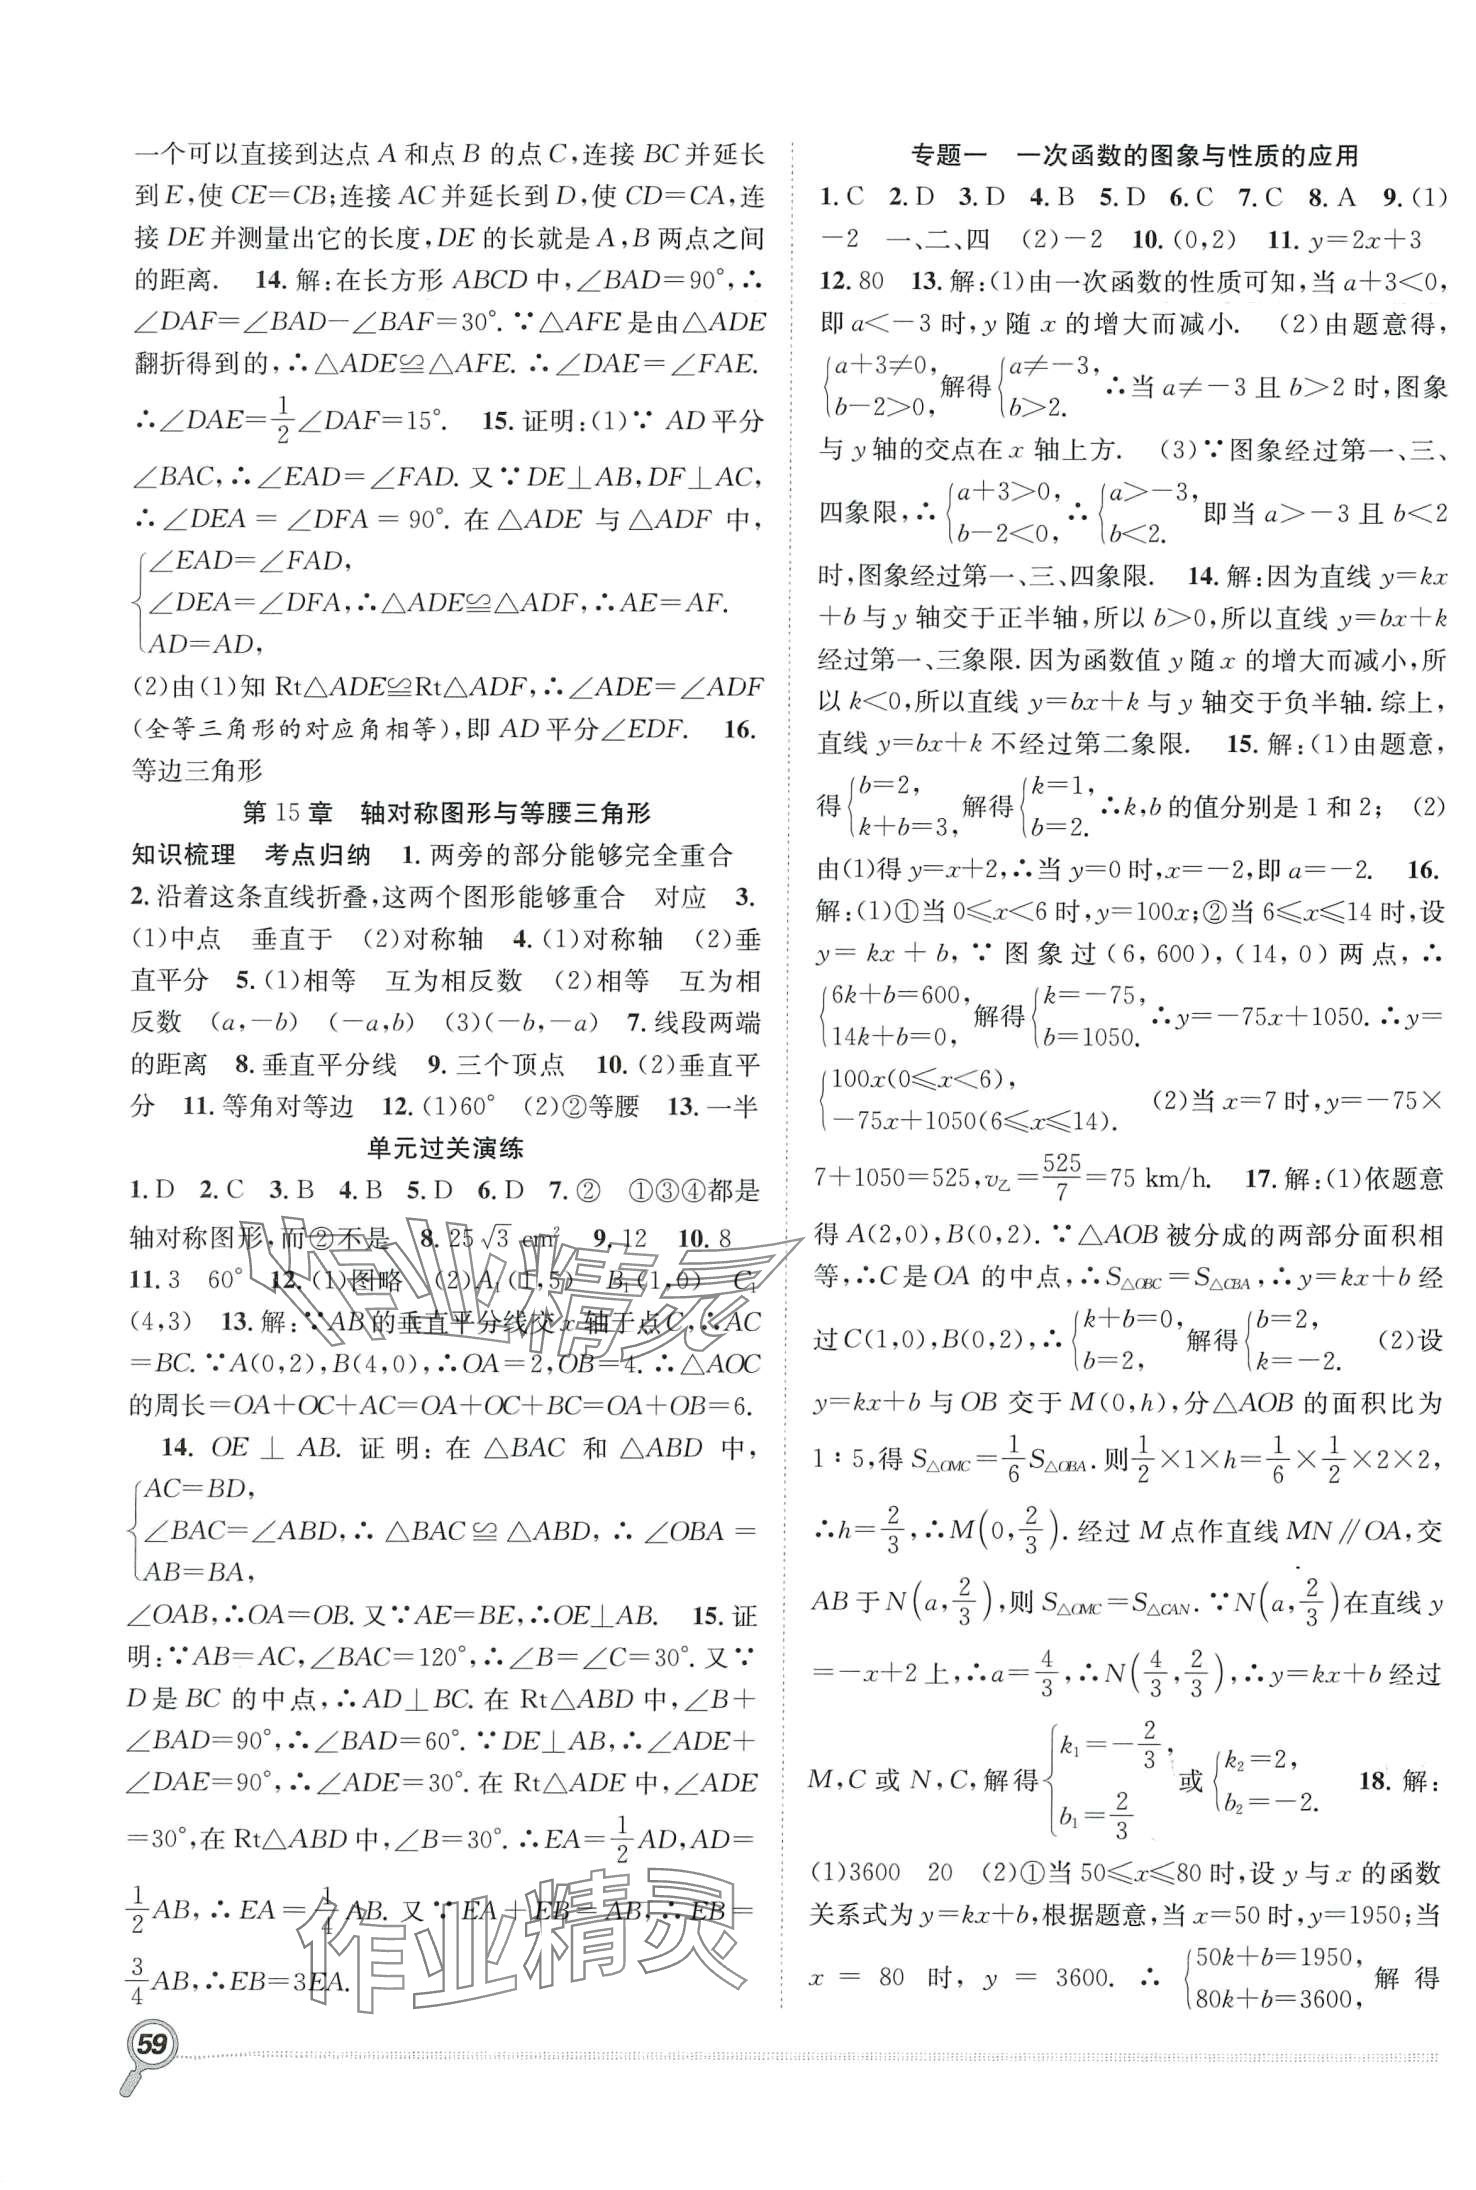 一个可以直接到达点 A 和点 B 的点 C,连接 BC 并延长
到 E,使 CE=CB;连接 AC 并延长到 D,使 CD=CA,连
接 DE 并测量出它的长度,DE 的长就是 A,B 两点之间
的距离. 14.解:在长方形 ABCD 中,∠BAD=90°,∴
∠DAF=∠BAD-∠BAF=30°.∵△AFE 是由△ADE
翻折得到的,∴△ADE≌△AFE.∴∠DAE=∠FAE.
∴∠DAE=1/2∠DAF=15°. 15.证明:(1)∵AD 平分
∠BAC,∴∠EAD=∠FAD.又∵DE⊥AB,DF⊥AC,
∴∠DEA=∠DFA=90°.在△ADE 与△ADF 中,
{∠EAD=∠FAD,
∠DEA=∠DFA,∴△ADE≌△ADF,∴AE=AF.
AD=AD,
(2)由(1)知 Rt△ADE≌Rt△ADF,∴∠ADE=∠ADF
(全等三角形的对应角相等),即 AD 平分∠EDF. 16.
等边三角形
第 15 章 轴对称图形与等腰三角形
知识梳理 考点归纳 1.两旁的部分能够完全重合
2.沿着这条直线折叠,这两个图形能够重合 对应 3.
(1)中点 垂直于 (2)对称轴 4.(1)对称轴 (2)垂
直平分 5.(1)相等 互为相反数 (2)相等 互为相
反数 (a,-b) (-a,b) (3)(-b,-a) 7.线段两端
的距离 8.垂直平分线 9.三个顶点 10.(2)垂直平
分 11.等角对等边 12.(1)60° (2)②等腰 13.一半
单元过关演练
1.D 2.C 3.B 4.B 5.D 6.D 7.② ①③④都是
轴对称图形,而②不是 8.25√3 cm² 9.12 10.8
11.3 60° 12.(1)图略 (2)A₁(1,5) B₁(1,0) C₁
(4,3) 13.解:∵AB 的垂直平分线交 x 轴于点 C,∴AC
=BC.∵A(0,2),B(4,0),∴OA=2,OB=4.∴△AOC
的周长=OA+OC+AC=OA+OC+BC=OA+OB=6.
14. OE⊥AB. 证明:在△BAC 和△ABD 中,
{AC=BD,
∠BAC=∠ABD,∴△BAC≌△ABD,∴∠OBA=
AB=BA,
∠OAB,∴OA=OB.又∵AE=BE,∴OE⊥AB. 15.证
明:∵AB=AC,∠BAC=120°,∴∠B=∠C=30°.又∵
D 是 BC 的中点,∴AD⊥BC.在 Rt△ABD 中,∠B+
∠BAD=90°,∴∠BAD=60°.∵DE⊥AB,∴∠ADE+
∠DAE=90°,∴∠ADE=30°.在 Rt△ADE 中,∠ADE
=30°,在 Rt△ABD 中,∠B=30°.∴EA=1/2AD,AD=
1/2AB,∴EA=1/4AB.又∵EA+EB=AB,∴EB=
3/4AB,∴EB=3EA.
专题一 一次函数的图象与性质的应用
1.C 2.D 3.D 4.B 5.D 6.C 7.C 8.A 9.(1)
-2 一、二、四 (2)-2 10.(0,2) 11.y=2x+3
12.80 13.解:(1)由一次函数的性质可知,当 a+3<0,
即 a<-3 时,y 随 x 的增大而减小. (2)由题意得,
{a+3≠0, b-2>0,解得{a≠-3, b>2.∴当 a≠-3 且 b>2 时,图象
与 y 轴的交点在 x 轴上方. (3)∵图象经过第一、三、
四象限,∴{a+3>0, b-2<0,∴{a>-3, b<2.即当 a>-3 且 b<2
时,图象经过第一、三、四象限. 14.解:因为直线 y=kx
+b 与 y 轴交于正半轴,所以 b>0,所以直线 y=bx+k
经过第一、三象限.因为函数值 y 随 x 的增大而减小,所
以 k<0,所以直线 y=bx+k 与 y 轴交于负半轴.综上,
直线 y=bx+k 不经过第二象限. 15.解:(1)由题意,
得{b=2, k+b=3,解得{k=1, b=2.∴k,b 的值分别是 1 和 2; (2)
由(1)得 y=x+2,∴当 y=0 时,x=-2,即 a=-2. 16.
解:(1)①当 0≤x<6 时,y=100x;②当 6≤x≤14 时,设
y=kx+b,∵图象过(6,600),(14,0)两点,∴
{6k+b=600, 14k+b=0,解得{k=-75, b=1050.∴y=-75x+1050.∴y=
{100x(0≤x<6), -75x+1050(6≤x≤14). (2)当 x=7 时,y=-75×
7+1050=525,v乙=525/7=75 km/h. 17.解:(1)依题意
得 A(2,0),B(0,2).∵△AOB 被分成的两部分面积相
等,∴C 是 OA 的中点,∴S△OBC=S△CBA,∴y=kx+b 经
过 C(1,0),B(0,2),∴{k+b=0, b=2,解得{b=2, k=-2. (2)设
y=kx+b 与 OB 交于 M(0,h),分△AOB 的面积比为
1∶5,得 S△OMC=1/6S△OBA.则1/2×1×h=1/6×1/2×2×2,
∴h=2/3,∴M(0,2/3).经过 M 点作直线 MN∥OA,交
AB 于 N(a,2/3),则 S△OMC=S△CAN.∵N(a,2/3)在直线 y
=-x+2 上,∴a=4/3,∴N(4/3,2/3),∴y=kx+b 经过
M,C 或 N,C,解得{k₁=-2/3, b₁=2/3 或{k₂=2, b₂=-2. 18.解:
(1)3600 20 (2)①当 50≤x≤80 时,设 y 与 x 的函数
关系式为 y=kx+b,根据题意,当 x=50 时,y=1950;当
x=80 时,y=3600.∴{50k+b=1950, 80k+b=3600,解得
59
作业精灵
作业精灵